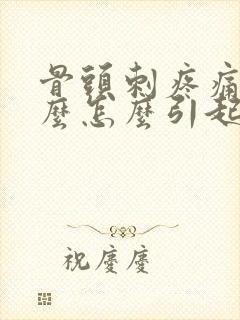 骨頭刺疼痛
麼怎麼引起
祝慶慶